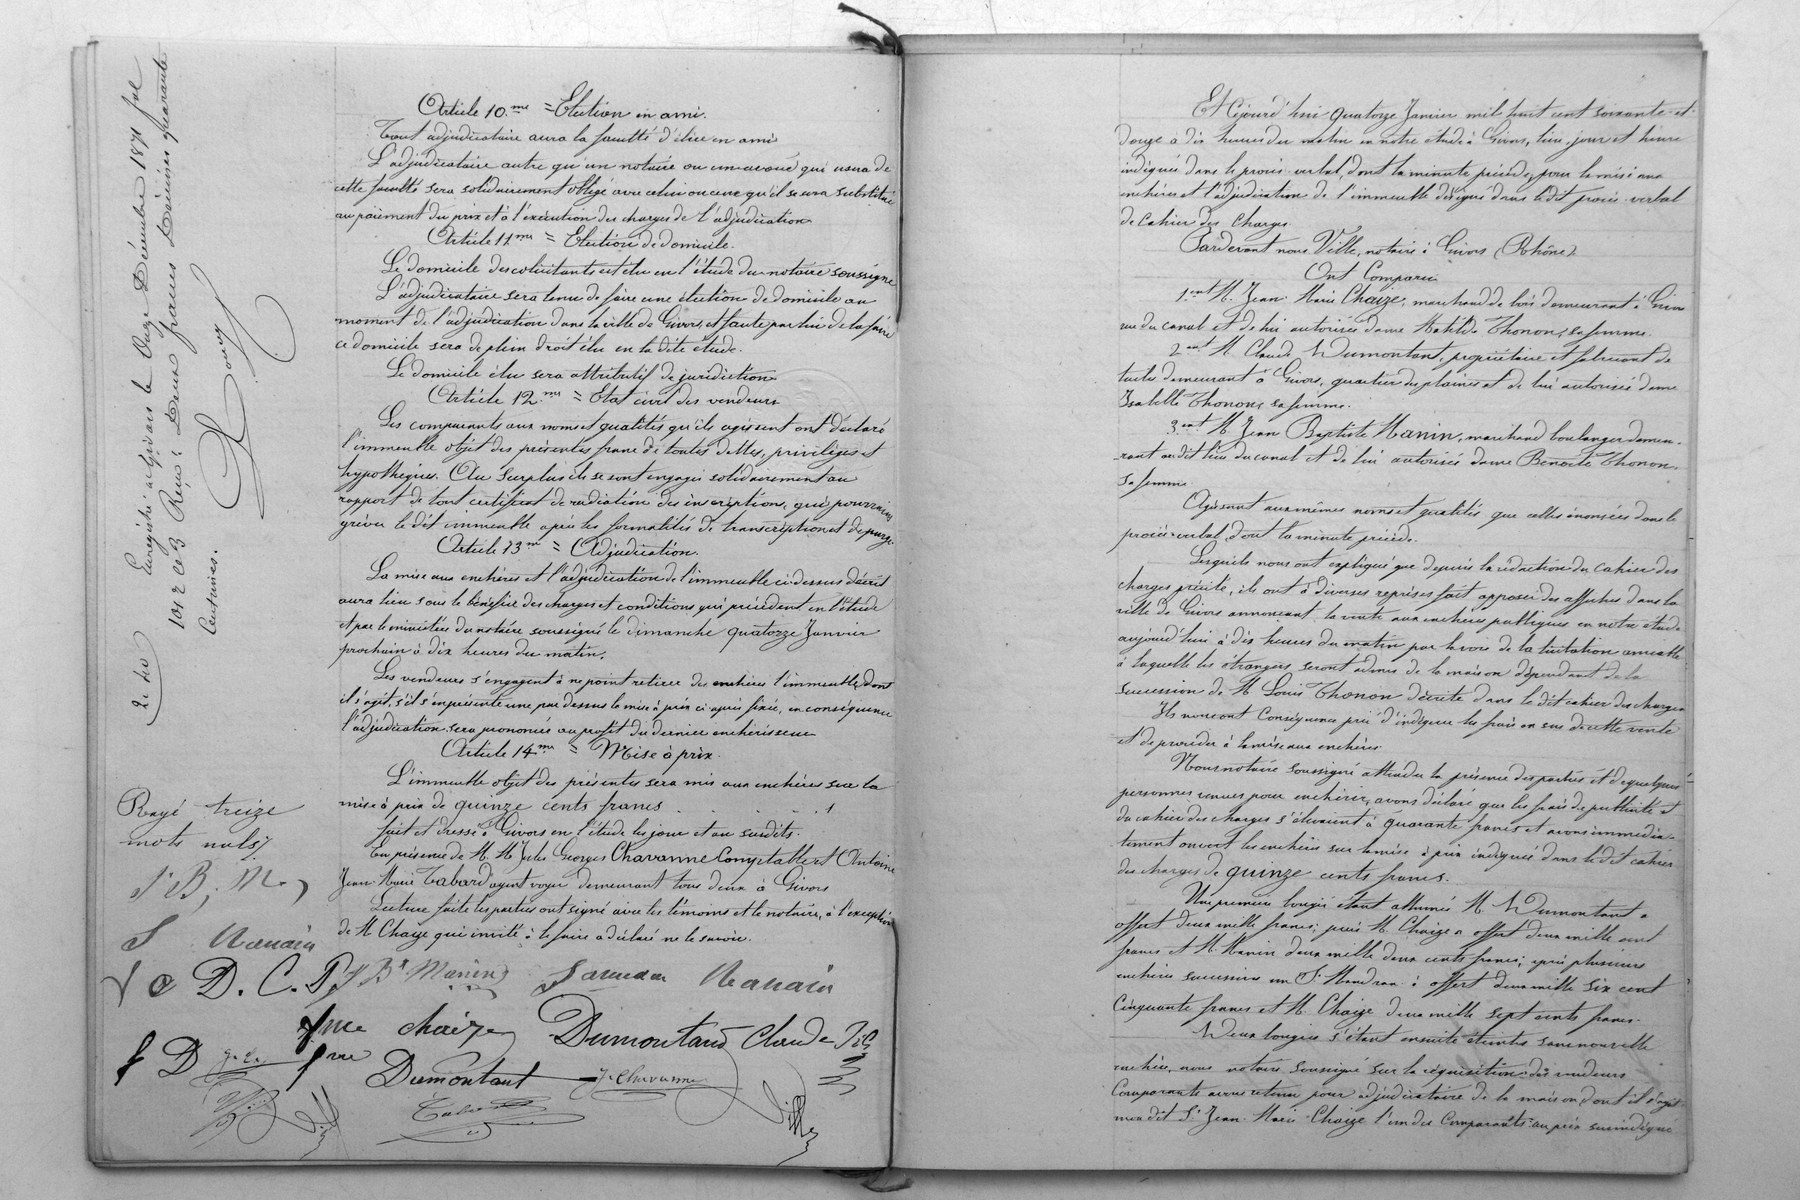 Article 10.me = Election en ami.
Tout adjudicataire aura la faculté d'élire en ami
L'adjudicataire autre qu'un notaire ou un avoué qui usera de
cette faculté sera solidairement obligé avec celui ou ceux qu'il se sera substitué
au paiement du prix et à l'exécution des charges de l'adjudication
Article 11me = Election de domicile.
Le domicile des colicitants est élu en l'étude du notaire soussigné
L'adjudicataire sera tenu de faire une élection de domicile au
moment de l'adjudication dans la ville de Givors, et faute par lui de la faire
ce domicile sera de plein droit élu en la dite étude.
Le domicile élu sera attributif de juridiction
Article 12.me = Etat civil des vendeurs
Les comparants aux noms et qualités qu'ils agissent ont déclaré
l'immeuble objet des présentes franc de toutes dettes, privilèges et
hypothèques. Au surplus ils se sont engagés solidairement au
rapport de tout certificat de radiation des inscriptions, qui pourraient
gréver le dit immeuble après les formalités de transcription et de purge.
Article 13me = Adjudication.
La mise aux enchères et l'adjudication de l'immeuble ci-dessus décrit
aura lieu sous le bénéfice des charges et conditions qui précèdent en l'étude
et par le ministère du notaire soussigné le dimanche quatorze Janvier
prochain à dix heures du matin.
Les vendeurs s'engagent à ne point retirer des enchères l'immeuble dont
il s'agit, s'il s'en présente une par dessus la mise à prix ci-après fixée, en conséquence
l'adjudication sera prononcée au profit du dernier enchérisseur
Article 14me = Mise à prix.
L'immeuble objet des présentes sera mis aux enchères sur la
mise à prix de quinze cents francs
Fait et dressé à Givors en l'étude les jour et an susdits.
En présence de M. M Jules Georges Chavanne Comptable et Antoine
Jean-Marie Tabard agent voyer demeurant tous deux à Givors
Lecture faite les parties ont signé avec les témoins et le notaire, à l'exception
de M Chaize qui invité à le faire a déclaré ne le savoir.
J Bte Manin
Manain
D. C. D
fme chaize
Dumontand Claude
fme Dumontant
J. Chavanne
Tabard
Ville
2f 40
Enregistré à Givors le Onze Décembre 1871 fol
101 r c 3 Reçu: Deux francs Décimes quarante
Centimes.
Rayé treize
mots nuls
J B. M
Manain
f D
Et Cejourd'hui quatorze Janvier mil huit cent soixante-et-
douze à dix heures du matin en notre étude à Givors, lieu, jour et heure
indiqués dans le procès-verbal, dont la minute précède, pour la mise aux
enchères et l'adjudication de l'immeuble désigné dans le dit procès-verbal
de Cahier des Charges
Pardevant nous Ville, notaire à Givors (Rhône)
Ont Comparu
1ent M. Jean-Marie Chaize, marchand de bois demeurant à Givors
rue du canal et de lui autorisée dame Matilde Thonon, sa femme.
2ent M. Claude Dumontant, propriétaire et fabricant de
tuiles demeurant à Givors, quartier des plaines et de lui autorisée dame
Isabelle Thonon, sa femme.
3ent M. Jean Baptiste Manin, marchand boulanger demeu-
rant au dit lieu du canal et de lui autorisée dame Benoite Thonon
sa femme
Agissant aux mêmes noms et qualités que celles énoncées dans le
procès-verbal, dont la minute précède.
Lesquels nous ont expliqué que depuis la rédaction du Cahier des
charges précité, ils ont à diverses reprises fait apposer des affiches dans la
ville de Givors annonçant la vente aux enchères publiques en notre étude
aujourd'hui à dix heures du matin par la voie de la licitation amiable
à laquelle les étrangers seront admis de la maison dépendant de la
succession de M Louis Thonon décrite dans le dit cahier des charges
Ils nous ont Conséquence prié d'indiquer les frais en sus de cette vente
et de procéder à la mise aux enchères
Nous notaire soussigné attendu la présence des parties et de quelques
personnes venues pour enchérir, avons déclaré que les frais de publicité et
du cahier des charges s'élevaient à quarante francs et avons immédia-
tement ouvert les enchères sur la mise à prix indiquée dans le dit cahier
des charges de quinze cents francs.
Une première bougie étant allumée M. Dumontant a
offert deux mille francs; puis M. Chaize a offert deux mille cent
francs et M. Manin deux mille deux cents francs; après plusieurs
enchères successives un Sr Mandran a offert deux mille six cent
Cinquante francs et M. Chaize deux mille sept cents francs.
Deux bougies s'étant ensuite éteintes sans nouvelle
enchère, nous notaire soussigné sur la réquisition des vendeurs
Comparants avons retenu pour adjudicataire de la maison, dont il s'agit
mon dit Sr Jean-Marie Chaize l'un des Comparants au prix susindiqué